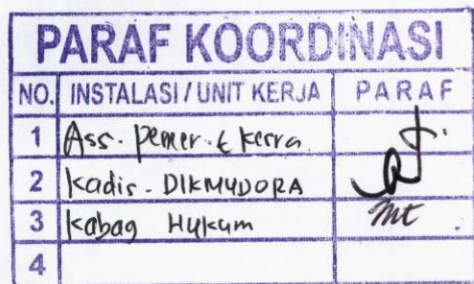 PARAF KOORDINASI
NO. INSTALASI / UNIT KERJA PARAF
1 Ass. Pemer. & Kesra
2 Kadis - DIKMUDORA
3 Kabag Hukum
4